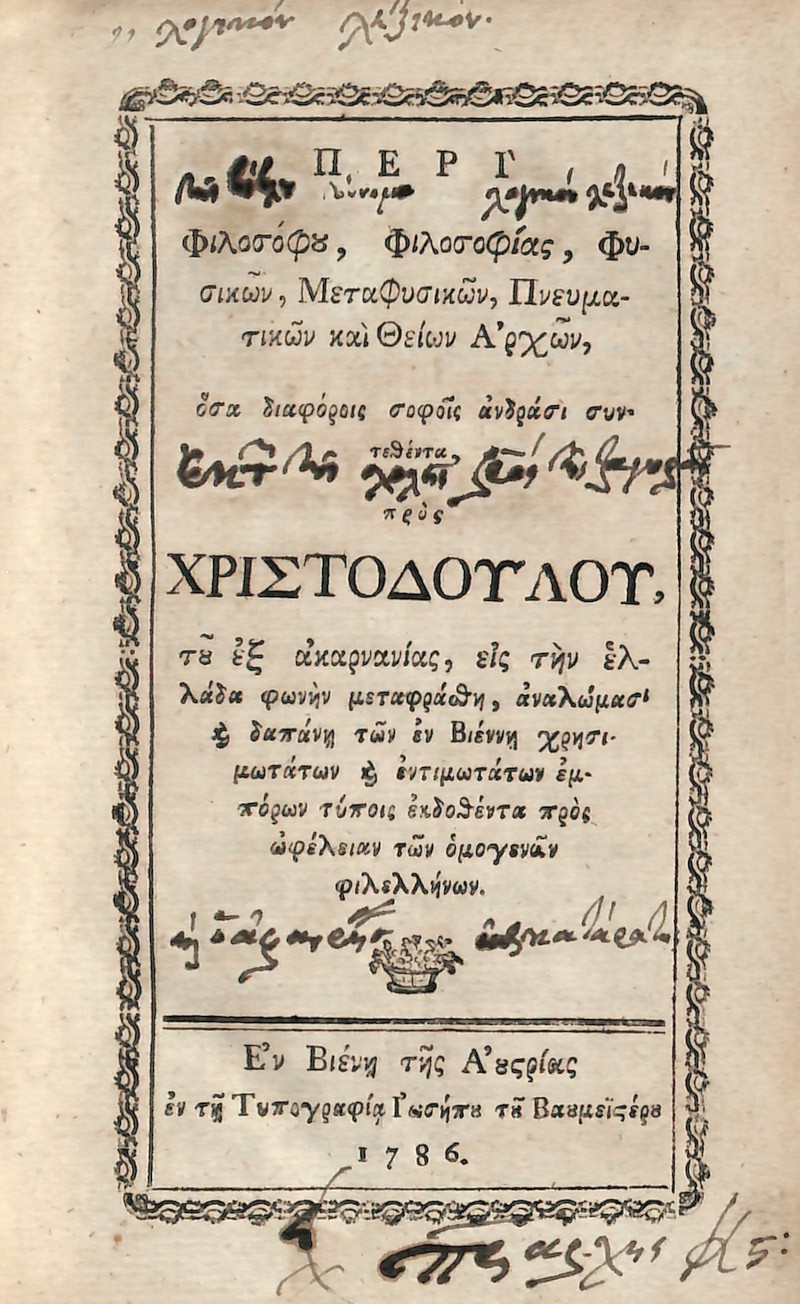 λογικόν λεξικόν.
ΠΕΡῚ
λογικόν λεξικόν
Φιλοσόφȣ, Φιλοσοφίας, Φυ-
σικῶν, Μεταφυσικῶν, Πνευμα-
τικῶν καὶ Θείων Ἀρχῶν,
ὅσα διαφόροις σοφοῖς ἀνδράσι συν-
τεθέντα,
πρὸς
ΧΡΙΣΤΟΔΟΥΛΟΥ,
τȣ͂ ἐξ ἀκαρνανίας, εἰς τὴν ἑλ-
λάδα φωνὴν μεταφράσθη, ἀναλώμασι
ϗ δαπάνῃ τῶν ἐν Βιέννῃ χρησι-
μωτάτων ϗ ἐντιμωτάτων ἐμ-
πόρων τύποις ἐκδοθέντα πρὸς
ὠφέλειαν τῶν ὁμογενῶν
φιλελλήνων.
Ἐν Βιένῃ τῆς Ἀȣςρίας
ἐν τῇ Τυπογραφίᾳ Ἰωσήπȣ τȣ͂ Βαȣμεϊςέρȣ
1786.